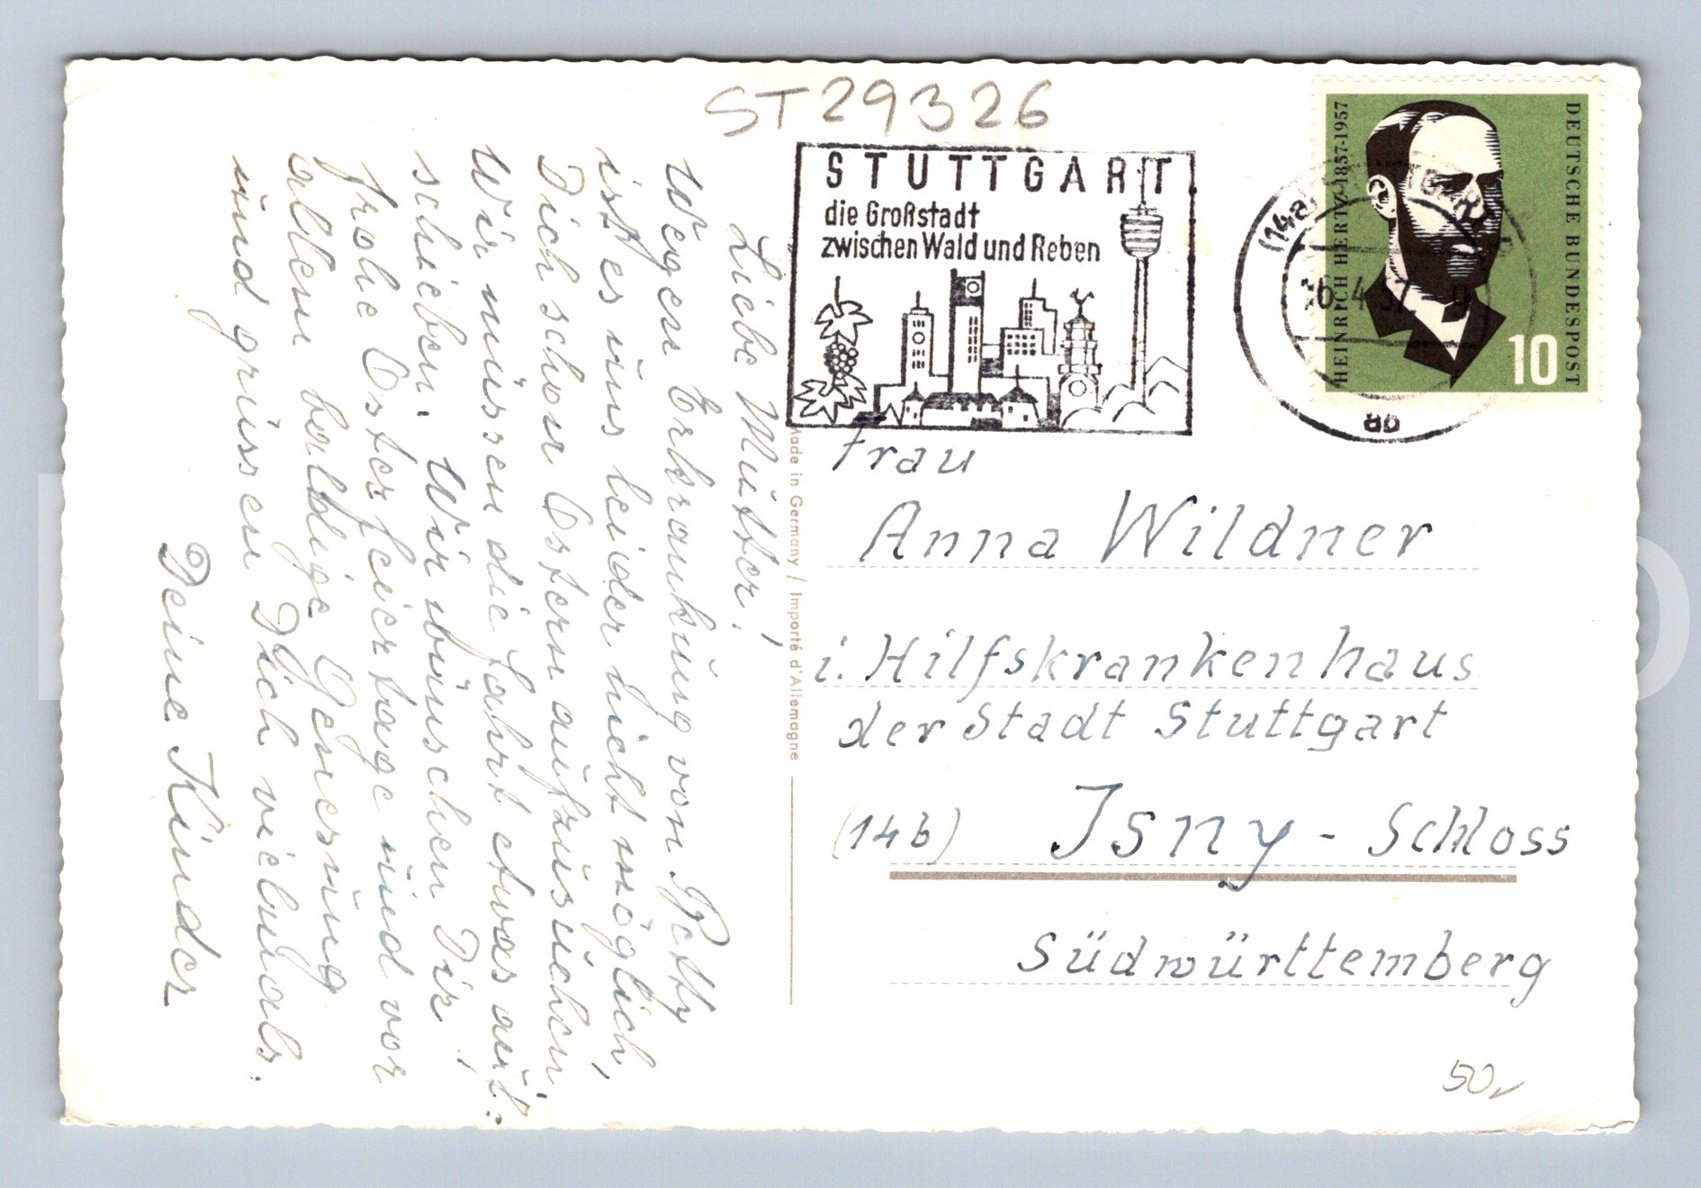 ST29326
STUTTGART
die Großstadt
zwischen Wald und Reben
(14a)
-6.-4.57.-9
ab
HEINRICH HERTZ·1857·1957
DEUTSCHE BUNDESPOST
10
Liebe Mutter!
Wegen Erkrankung von Hetty
ist es uns leider nicht möglich,
Dich schon Ostern aufzusuchen.
Wir müssen die Fahrt etwas auf-
schieben. Wir wünschen Dir
frohe Osterfeiertage und vor
allem baldige Genesung
und grüssen Dich vielmals.
Deine Kinder
Made in Germany / Importé d'Allemagne
Frau
Anna Wildner
i. Hilfskrankenhaus
der Stadt Stuttgart
(14b) Isny - Schloss
Südwürttemberg
50,